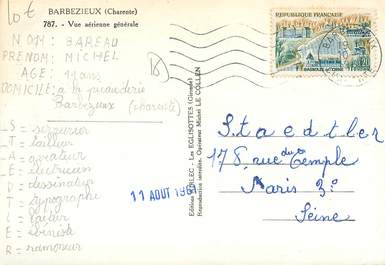 lot
BARBEZIEUX (Charente)
787. - Vue aérienne générale
NOM: BAREAU
PRENOM: MICHEL
AGE: 11 ans
DOMICILE: à la
Barbezieux (charente)
S = serrurier
T = tailleur
A = aviateur
E = électricien
D = dessinateur
T = typographe
L = laitier
E = ébéniste
R = ramoneur
11 AOUT 196
Les EGLISOTTES (Gironde)
Reproduction interdite. Opérateur Michel LE COLLEN
REPUBLIQUE FRANÇAISE
Staedtler
178, rue du Temple
Paris 3e
Seine